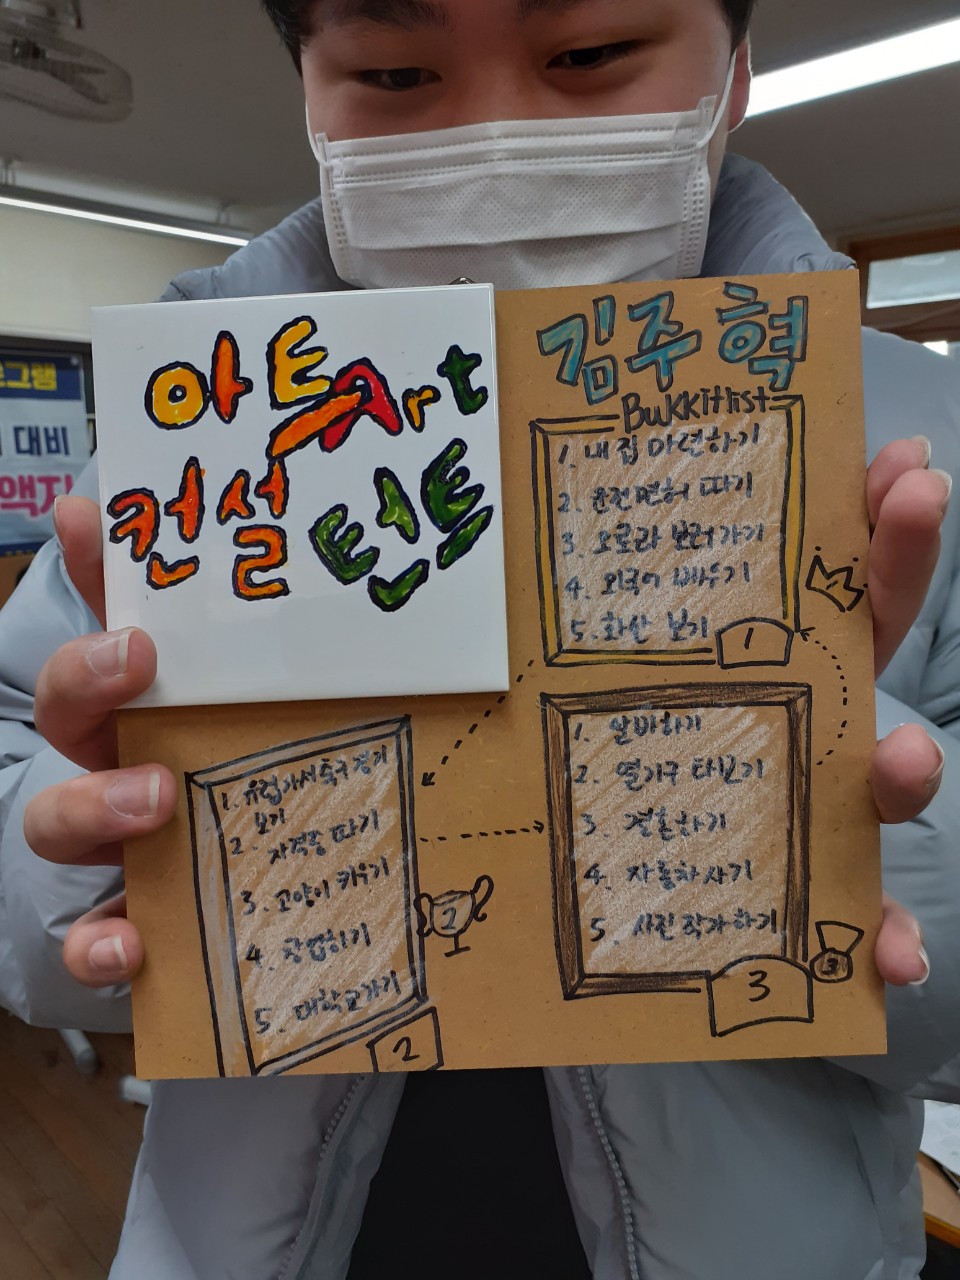 아트Art
컨설
턴트
김주혁
Bukkitlist
1. 내 집 마련하기
2. 운전면허 따기
3. 오로라 보러가기
4. 외국어 배우기
5. 화산 보기
1
1. 유럽가서 축구 경기
보기
2. 자격증 따기
3. 고양이 키우기
4. 창업하기
5. 대학교가기
2
2
1. 알바하기
2. 열기구 타보기
3. 결혼하기
4. 자동차 사기
5. 사진 작가하기
3
3
그램
대비
액자